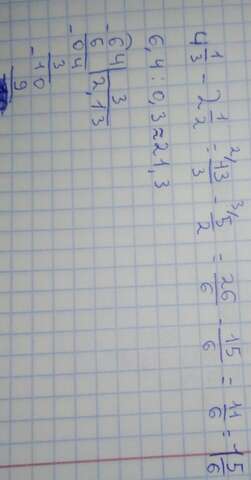 4 1/3 - 2 1/2 = ²/43/3 - ³/5/2 = 26/6 - 15/6 = 11/6 = 1 5/6
6,4 : 0,3 ≈ 21,3
- 64 | 3
6 | 2,13
- 04
3
- 10
9